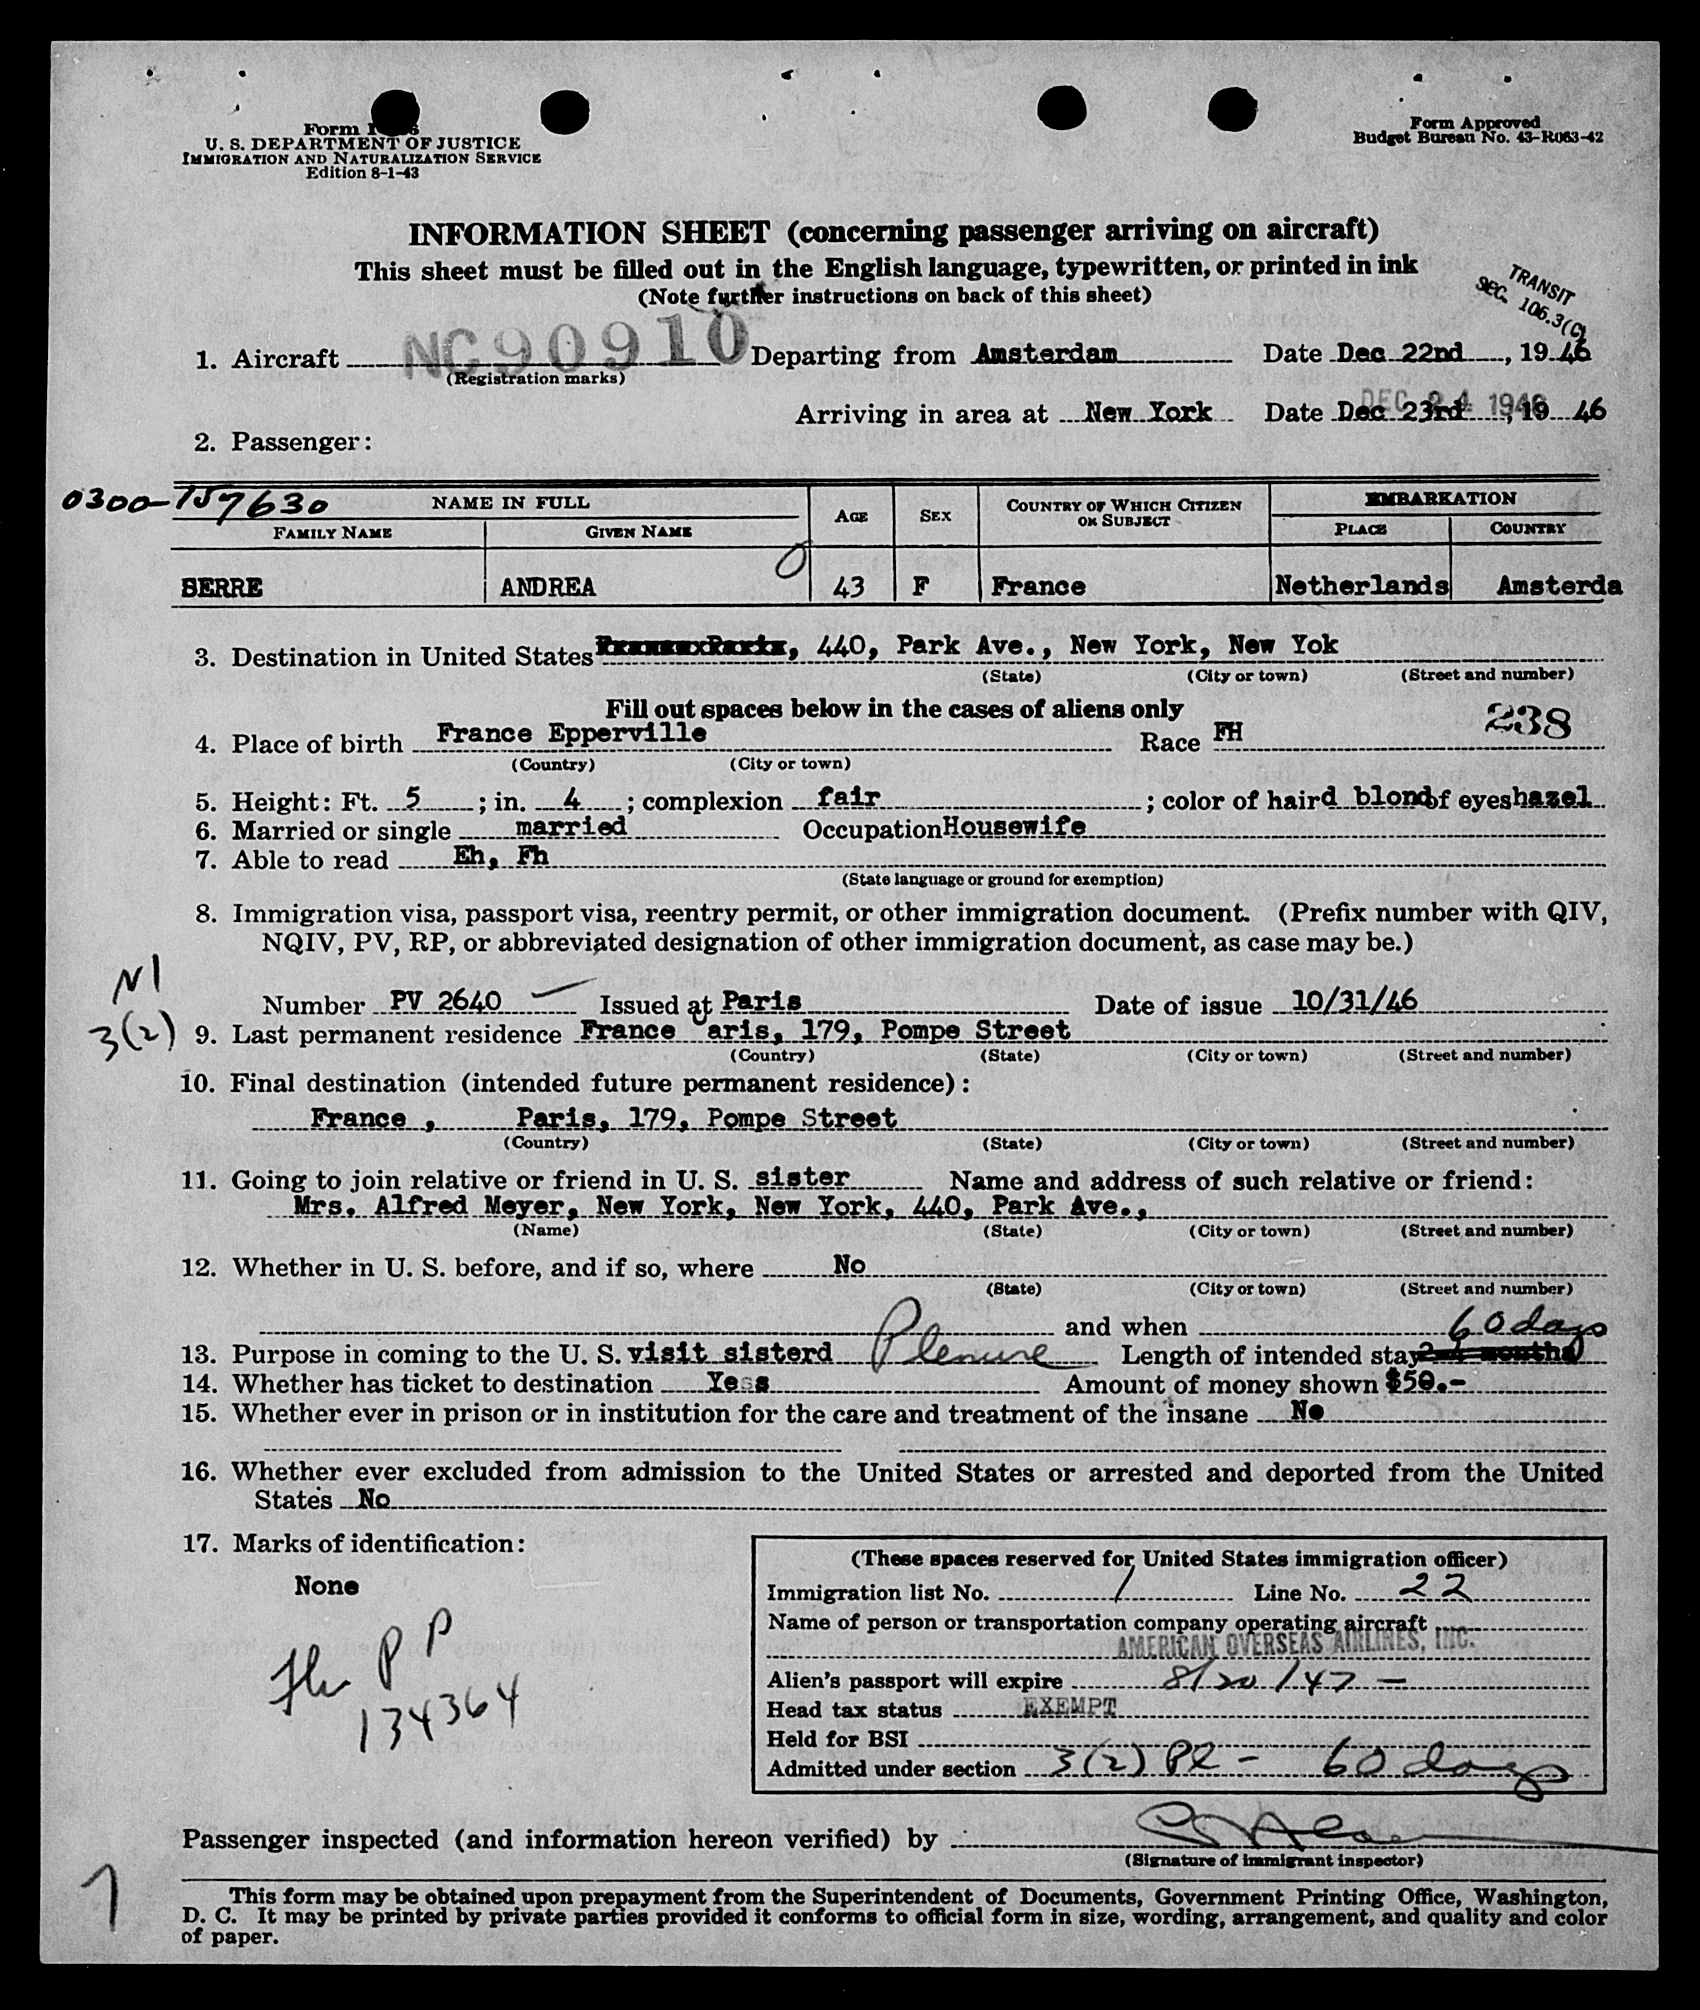 Form I
U. S. DEPARTMENT OF JUSTICE
IMMIGRATION AND NATURALIZATION SERVICE
Edition 8-1-43
Form Approved
Budget Bureau No. 43-R063-42
INFORMATION SHEET (concerning passenger arriving on aircraft)
This sheet must be filled out in the English language, typewritten, or printed in ink
(Note further instructions on back of this sheet)
TRANSIT
SEC. 106.3(C)
1. Aircraft NC90910 Departing from Amsterdam Date Dec 22nd, 19 46
(Registration marks)
Arriving in area at New York Date Dec 23rd, 19 46
DEC 24 1946
2. Passenger:
0300-157630
NAME IN FULL AGE SEX COUNTRY OF WHICH CITIZEN OR SUBJECT EMBARKATION
FAMILY NAME GIVEN NAME PLACE COUNTRY
SERRE ANDREA 43 F France Netherlands Amsterda
3. Destination in United States , 440, Park Ave., New York, New Yok
(State) (City or town) (Street and number)
Fill out spaces below in the cases of aliens only
238
4. Place of birth France Epperville Race FH
(Country) (City or town)
5. Height: Ft. 5 ; in. 4 ; complexion fair ; color of hair d blond of eyes hazel
6. Married or single married Occupation Housewife
7. Able to read Eh, Fh
(State language or ground for exemption)
8. Immigration visa, passport visa, reentry permit, or other immigration document. (Prefix number with QIV,
NQIV, PV, RP, or abbreviated designation of other immigration document, as case may be.)
N1
Number PV 2640 Issued at Paris Date of issue 10/31/46
3(2)
9. Last permanent residence France Paris, 179, Pompe Street
(Country) (State) (City or town) (Street and number)
10. Final destination (intended future permanent residence):
France , Paris, 179, Pompe Street
(Country) (State) (City or town) (Street and number)
11. Going to join relative or friend in U. S. sister Name and address of such relative or friend:
Mrs. Alfred Meyer, New York, New York, 440, Park Ave.,
(Name) (State) (City or town) (Street and number)
12. Whether in U. S. before, and if so, where No
(State) (City or town) (Street and number)
and when
60 days
13. Purpose in coming to the U. S. visit sisterd Plesure Length of intended stay 2-4 months
14. Whether has ticket to destination Yess Amount of money shown $50.-
15. Whether ever in prison or in institution for the care and treatment of the insane No
16. Whether ever excluded from admission to the United States or arrested and deported from the United
States No
17. Marks of identification:
None
PP
134364
(These spaces reserved for United States immigration officer)
Immigration list No. 1 Line No. 22
Name of person or transportation company operating aircraft
AMERICAN OVERSEAS AIRLINES, INC.
Alien's passport will expire 8/20/47 -
Head tax status EXEMPT
Held for BSI
Admitted under section 3(2) Pl - 60 days
Passenger inspected (and information hereon verified) by
(Signature of immigrant inspector)
This form may be obtained upon prepayment from the Superintendent of Documents, Government Printing Office, Washington,
D. C. It may be printed by private parties provided it conforms to official form in size, wording, arrangement, and quality and color
of paper.